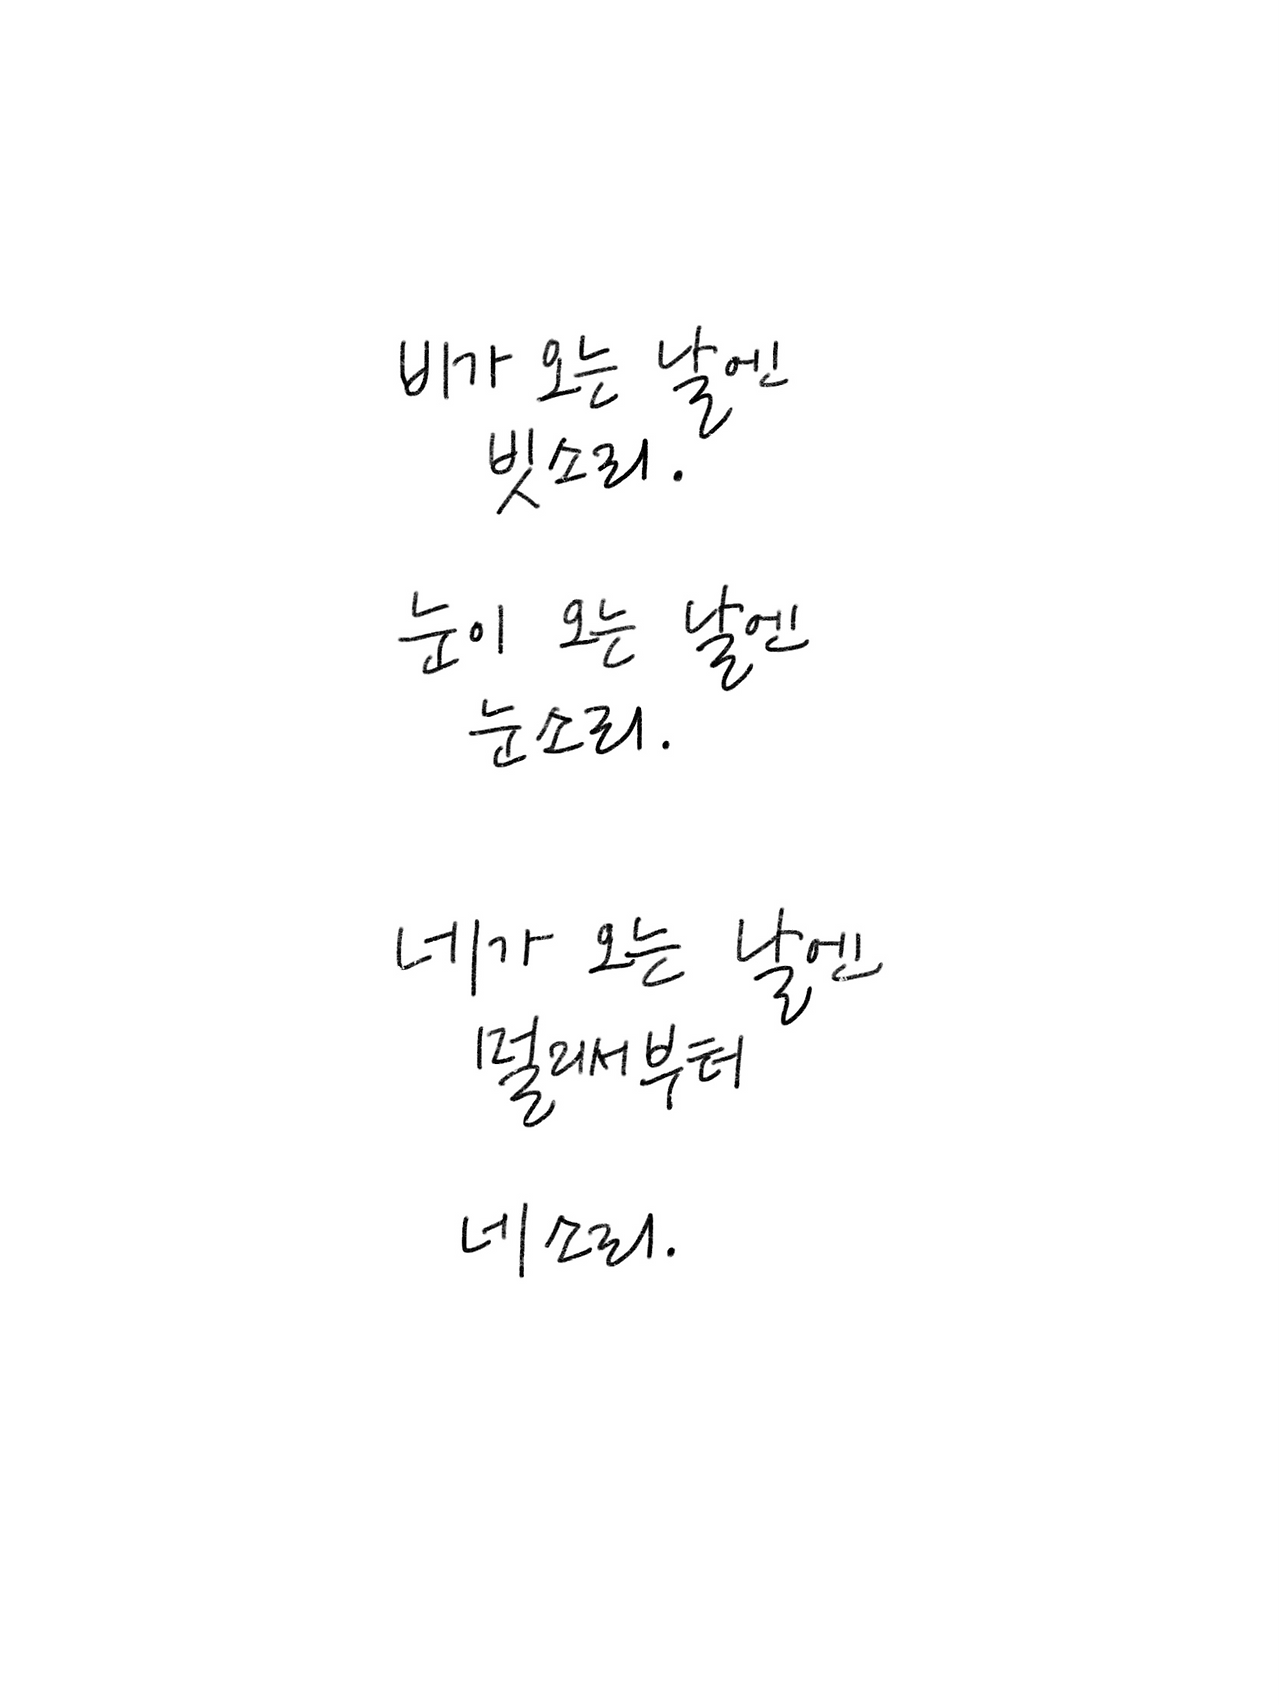 비가 오는 날엔
빗소리.
눈이 오는 날엔
눈소리.
네가 오는 날엔
멀리서부터
네 소리.